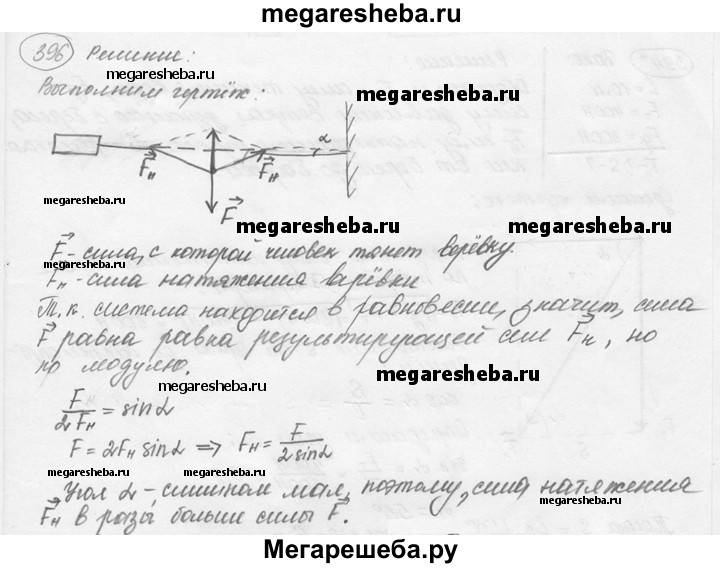 megaresheba.ru
396 Решение:
megaresheba.ru
Выполним чертёж:
megaresheba.ru
α
F⃗н F⃗н
megaresheba.ru
F⃗
megaresheba.ru megaresheba.ru
F⃗ - сила, с которой человек тянет верёвку.
megaresheba.ru
Fн - сила натяжения верёвки
Т.к. система находится в равновесии, значит, сила
F⃗ равна равна результирующей сил F⃗н, но
по модулю.
megaresheba.ru megaresheba.ru
F/2Fн = sinα
F = 2Fн sinα ⇒ Fн = F/2sinα
megaresheba.ru megaresheba.ru megaresheba.ru
Угол α - слишком мал, поэтому, сила натяжения
F⃗н в разы больше силы F⃗.
megaresheba.ru
Мегарешеба.ру